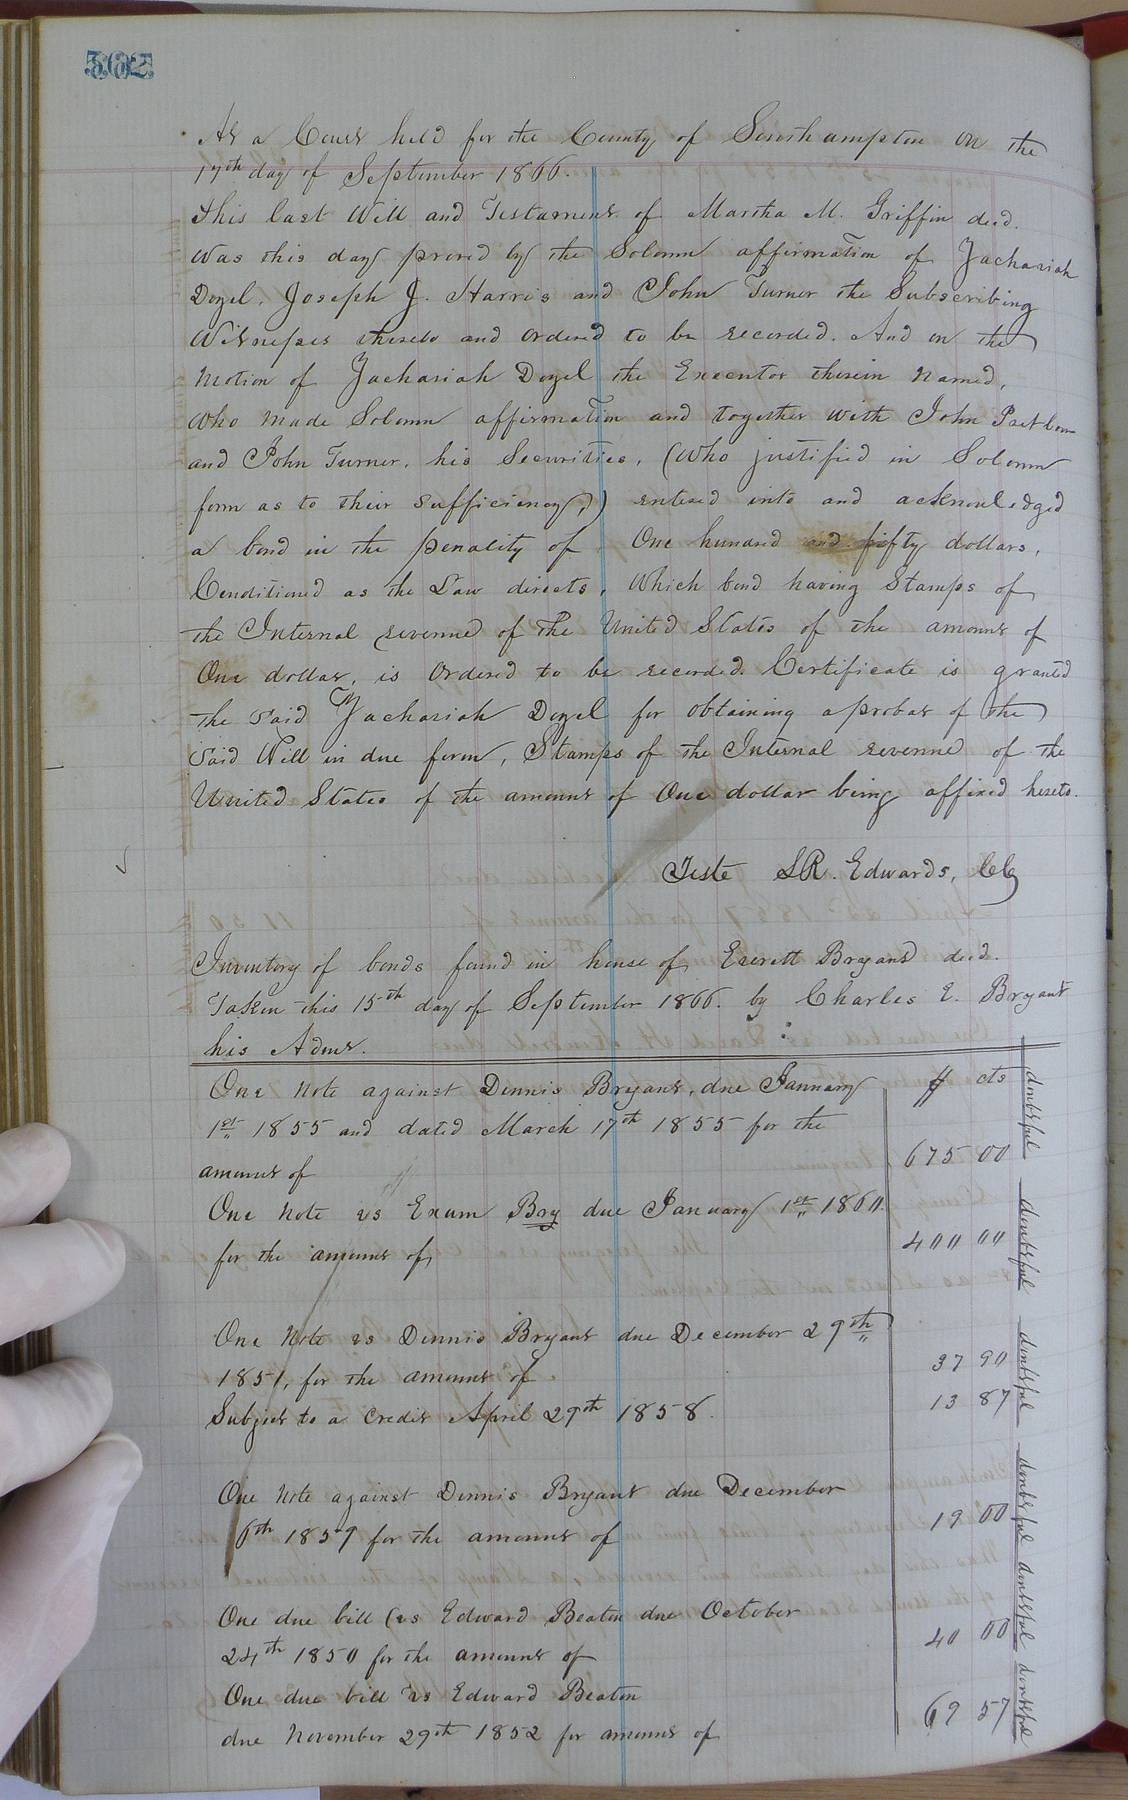 562
At a Court held for the County of Southampton on the
17th day of September 1866.
This last Will and Testament of Martha M. Griffin decd.
Was this day proved by the Solemn affirmation of Zachariah
Doyel, Joseph J. Harris and John Turner the Subscribing
Witnesses thereto and ordered to be recorded. And on the
Motion of Zachariah Doyel the Executor therein Named,
Who made Solemn affirmation and together with John
and John Turner, his Securities, (Who justified in Solemn
form as to their sufficiency,) entered into and acknowledged
a bond in the penality of One hundred and fifty dollars,
Conditioned as the Law directs, Which bond having Stamps of
the Internal revenue of the United States of the amount of
One dollar, is Ordered to be recorded. Certificate is granted
the said Zachariah Doyel for obtaining a probat of the
Said Will in due form, Stamps of the Internal revenue of the
United States of the amount of One dollar being affixed hereto.
Teste LR. Edwards, CC
Inventory of bonds found in house of Everett Bryant decd.
Taken this 15th day of September 1866. by Charles E. Bryant
his Admr.
One Note against Dennis Bryant, due January $ cts
1st 1855 and dated March 17th 1855 for the
amount of 675 00 doubtful
One Note vs Exum Bry due January 1st 1860.
for the amount of 400 00 doubtful
One Note vs Dennis Bryant due December 29th
1851, for the amount of 37 90 doubtful
Subject to a Credit April 29th 1858. 13 87
One Note against Dennis Bryant due December
6th 1859 for the amount of 19 00 doubtful
One due bill vs Edward Beaton due October
24th 1850 for the amount of 40 00 doubtful
One due bill vs Edward Beaton
due November 29th 1852 for amount of 69 57 doubtful